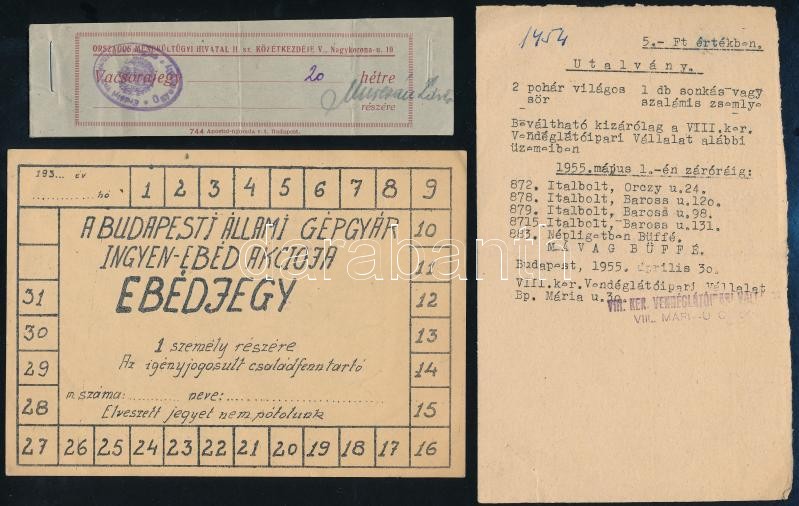 ORSZÁGOS MENEKÜLTÜGYI HIVATAL II. sz. KÖZÉTKEZDÉJE V., Nagykorona-u. 10
Vacsorajegy 20 hétre
részére
744 Apostol-nyomda r. t. Budapest.
193... év
............hó
1 2 3 4 5 6 7 8 9
10
11
12
13
14
15
16
31
30
29
28
27 26 25 24 23 22 21 20 19 18 17
A BUDAPESTI ÁLLAMI GÉPGYÁR
INGYEN-EBÉD AKCIÓJA
EBÉDJEGY
1 személy részére
Az igényjogosult családfenntartó
m. száma: neve:
Elveszett jegyet nem pótolunk
1954
5.- Ft értékben.
Utalvány.
2 pohár világos 1 db sonkás vagy
sör szalámis zsemlye
Beváltható kizárólag a VIII.ker.
Vendéglátóipari Vállalat alábbi
üzemeiben
1955.május 1.-én záróráig:
872. Italbolt, Orczy u.24.
878. Italbolt, Baross u.120.
879. Italbolt, Baross u.98.
8715.Italbolt, Baross u.131.
883. Népligetben Büffé.
MÁVAG BÜFFÉ.
Budapest, 1955. április 30.
VIII.ker.Vendéglátóipari Vállalat
Bp. Mária u.30.
VIII. KER. VENDÉGLÁTÓIPARI VÁLL
VIII. MÁRIA U.
darabanth